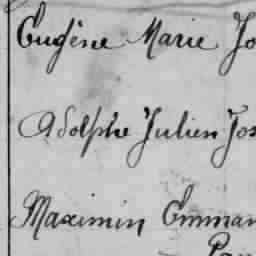 Eugène Marie Jo
Adolphe Julien Jos
Maximin Emman